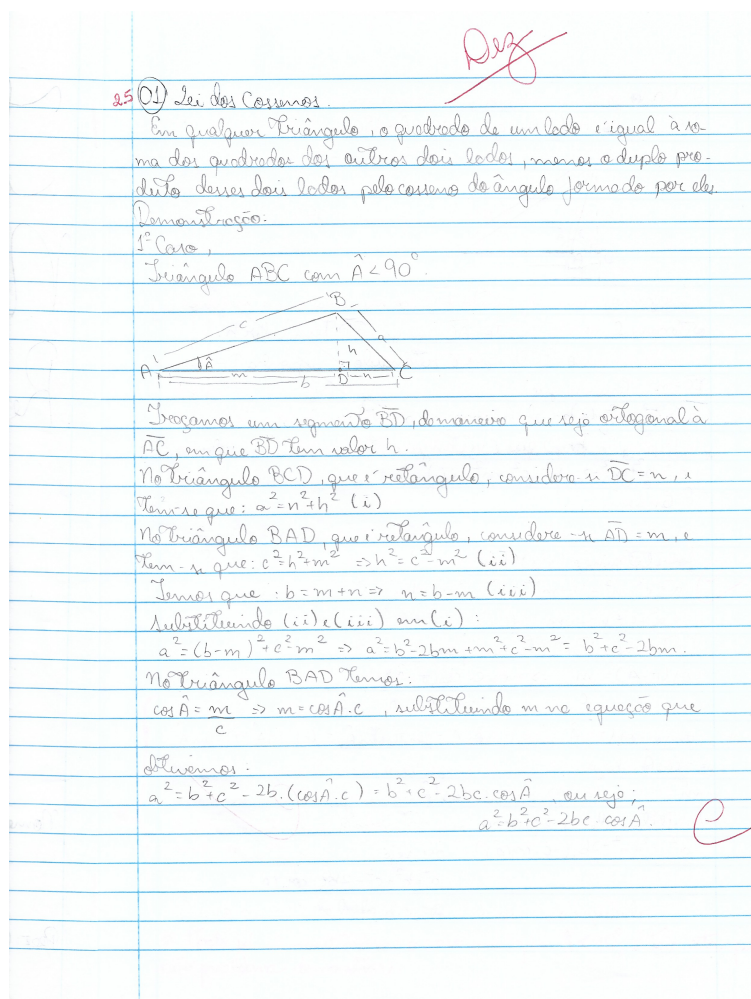 Dez
2.5 01 Lei dos Cossenos.
Em qualquer triângulo, o quadrado de um lado é igual à so-
ma dos quadrados dos outros dois lados, menos o duplo pro-
duto desses dois lados pelo cosseno do ângulo formado por eles.
Demonstração:
1º Caso,
Triângulo ABC com Â < 90°.
B
c
a
h
A Â m D n C
b
Traçamos um segmento B̅D̅, de maneira que seja ortogonal à
A̅C̅, em que B̅D̅ tem valor h.
No triângulo BCD, que é retângulo, considera-se D̅C̅ = n, e
tem-se que: a² = n² + h² (i)
No triângulo BAD, que é retângulo, considere-se A̅D̅ = m, e
tem-se que: c² = h² + m² => h² = c² - m² (ii)
Temos que: b = m + n => n = b - m (iii)
substituindo (ii) e (iii) em (i):
a² = (b-m)² + c² - m² => a² = b² - 2bm + m² + c² - m² = b² + c² - 2bm.
No triângulo BAD temos:
cos  = m/c => m = cos Â.c, substituindo m na equação que
obtivemos.
a² = b² + c² - 2b.(cos Â.c) = b² + c² - 2bc.cos Â, ou seja;
a² = b² + c² - 2bc.cos Â.
C